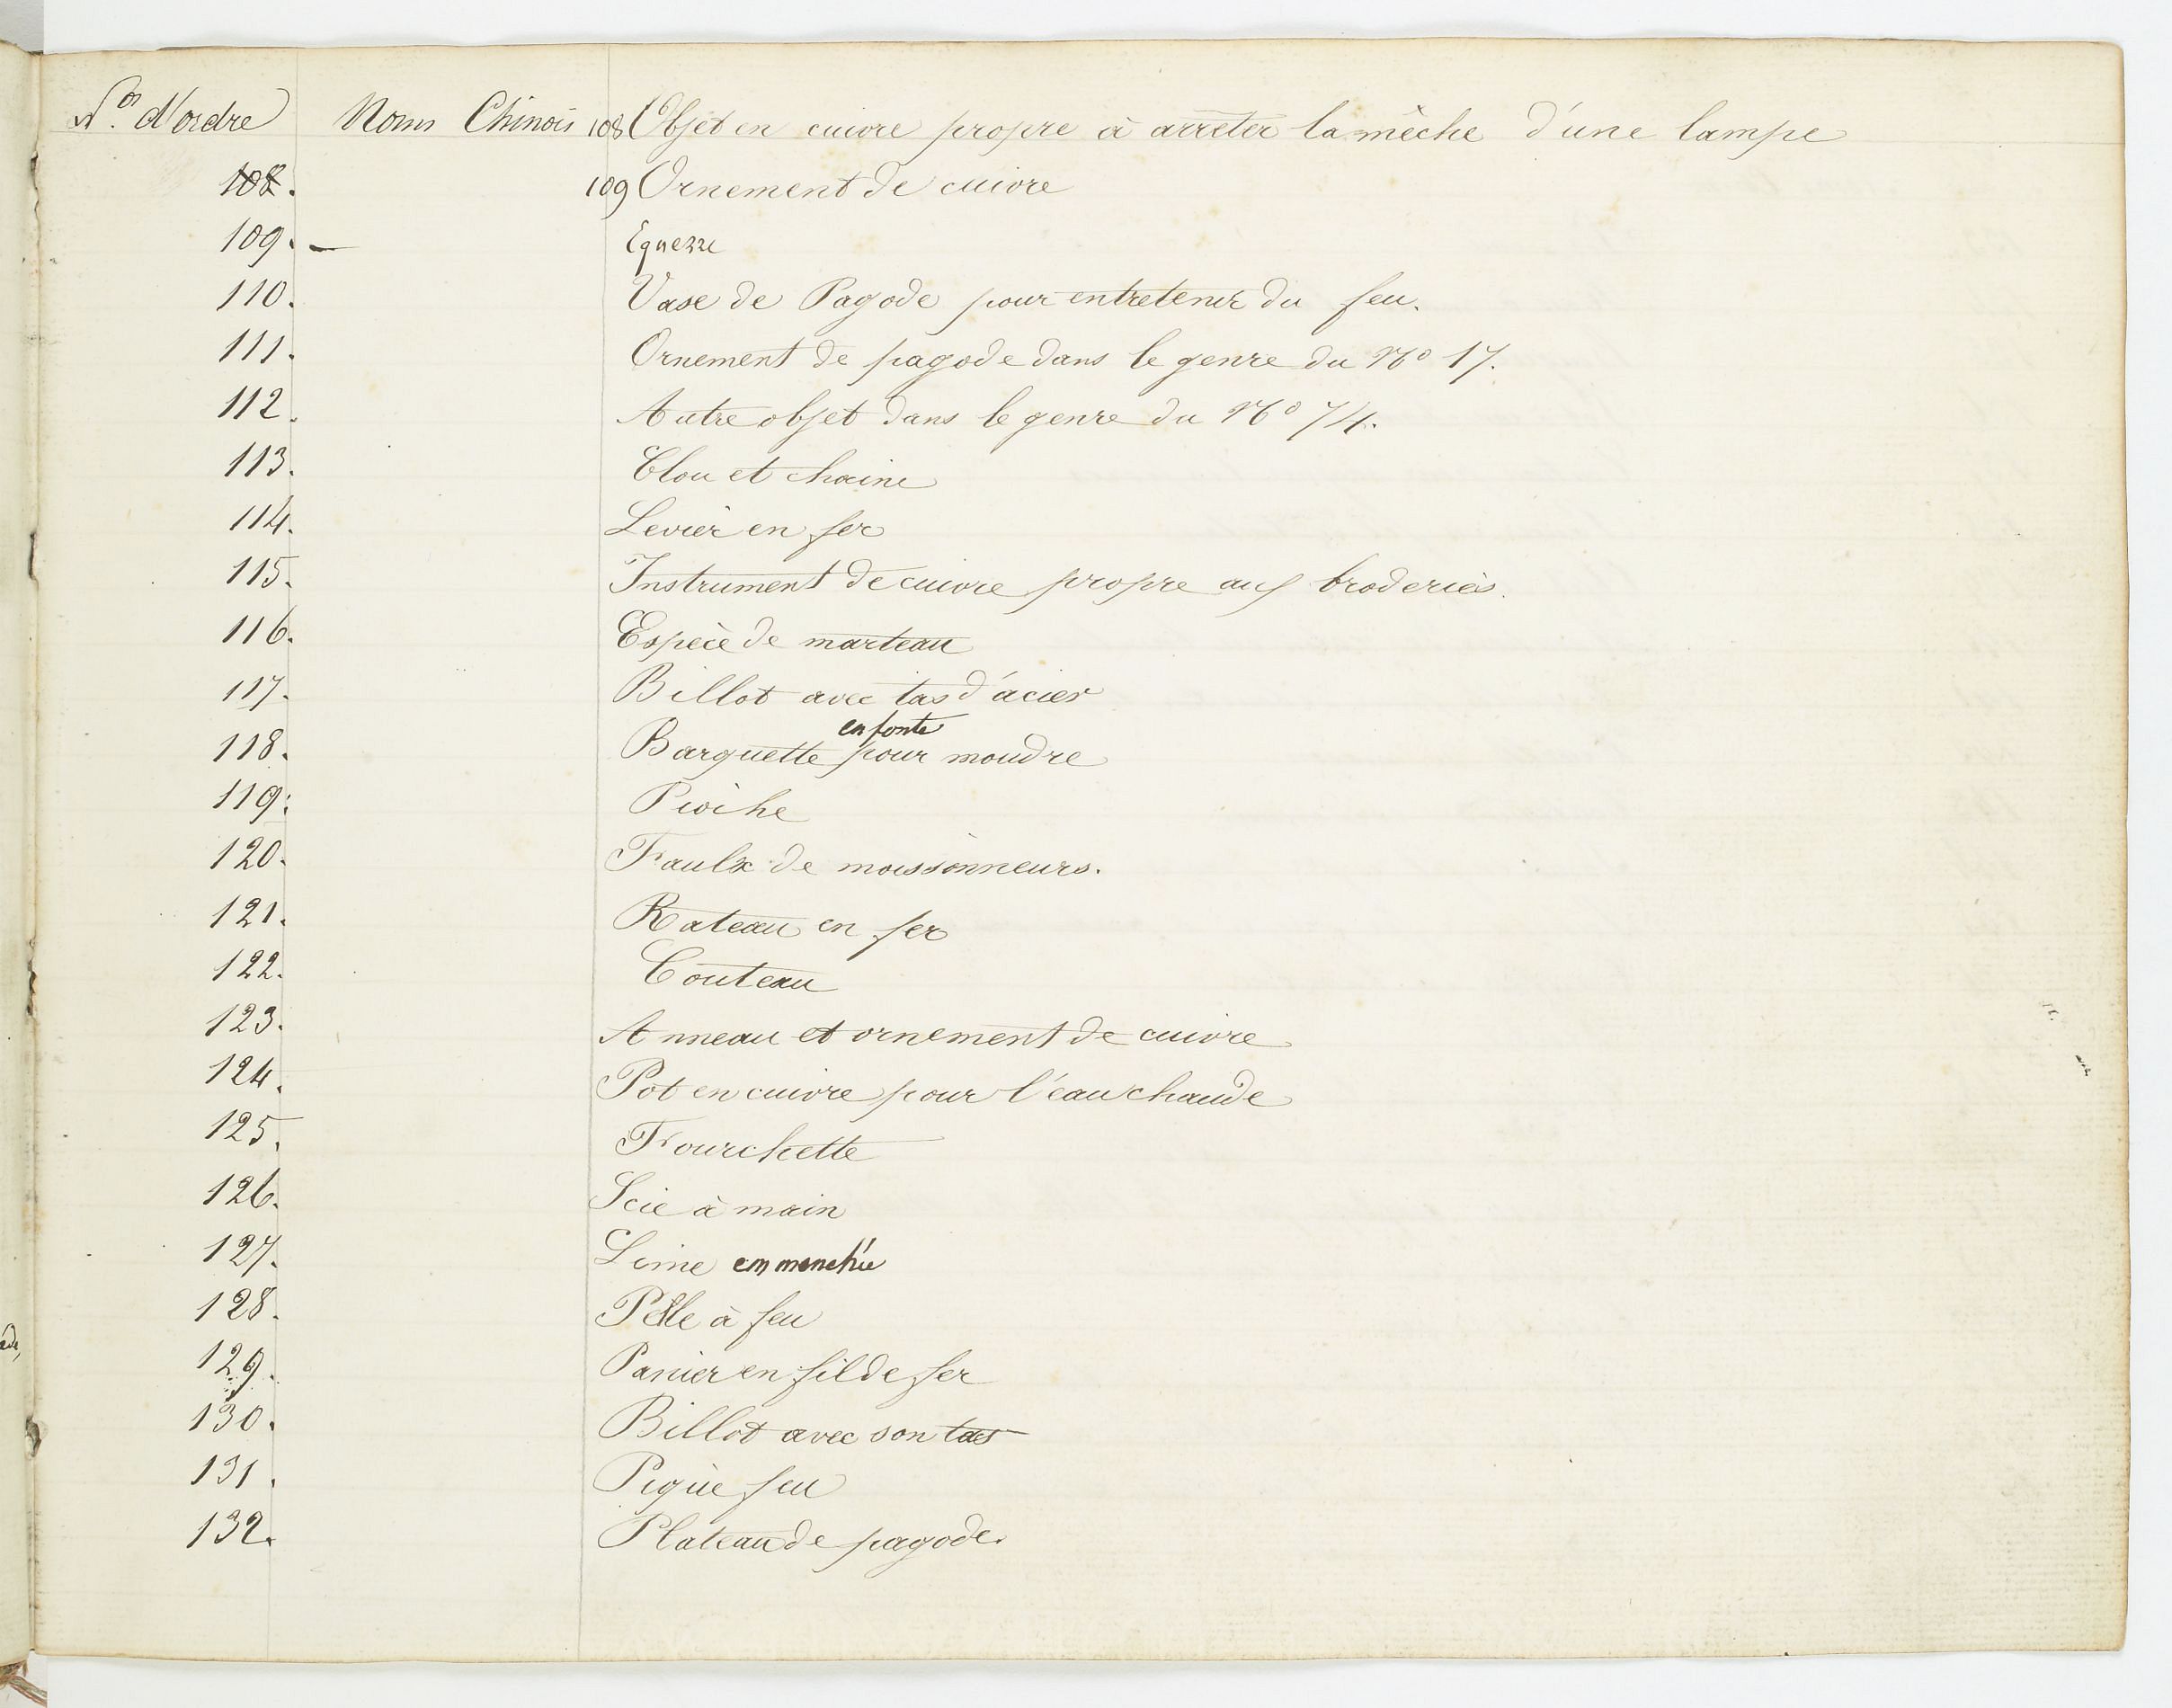 Nos d'ordre Noms Chinois 108 Objet en cuivre propre à arrêter la mêche d'une lampe
108. 109 Ornement de cuivre
109. — Equerre
110. Vase de Pagode pour entretenir du feu.
111. Ornement de pagode dans le genre du No 17.
112. Autre objet dans le genre du No 74.
113. Clou et chaine
114. Levier en fer
115. Instrument de cuivre propre aux broderies.
116. Espèce de marteau
117. Billot avec tas d'acier
en fonte
118. Barquette pour moudre
119. Pioche
120. Faulx de moissonneurs.
121. Rateau en fer
122. Couteau
123. Anneau et ornement de cuivre
124. Pot en cuivre pour l'eau chaude
125. Fourchette
126. Scie à main
127. Lime emmenchée
128. Pelle à feu
129. Panier en fil de fer
130. Billot avec son tas
131. Pique feu
132. Plateau de pagode.